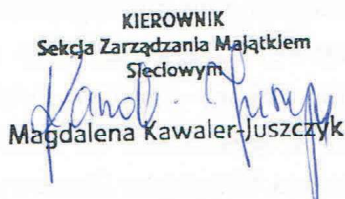 KIEROWNIK
Sekcja Zarządzania Majątkiem
Sieciowym
Magdalena Kawaler-Juszczyk